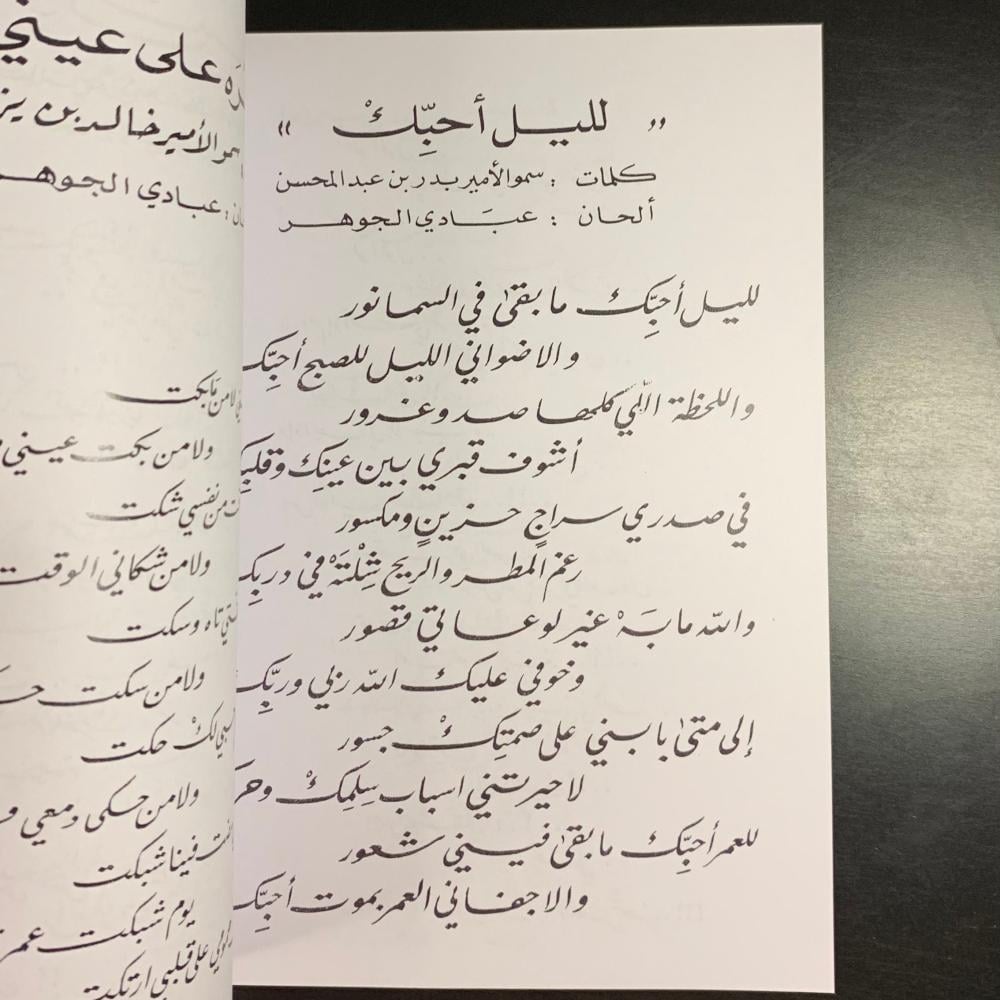 « لليل أحبِّكْ »
كلمات : سمو الأمير بدر بن عبد المحسن
ألحان : عبَادي الجوهر
لليل أحبِّكْ ما بقىٰ في السما نور
والا ضواني الليل للصبح أحبِّك
واللحظة اللّي كلها صد وغرور
أشوف قبري بين عينِك وقلبِك
في صدري سراجٍ حزينٍ ومكسور
رغم المطر والريح شِلْتَهْ في دربِك
والله ما بَهْ غير لوعاتي قصور
وخوفي عليك الله ربي وربِّك
إلى متىٰ بابني على صمتِكْ جسور
لا حيرتني اسباب سِلِمكْ وحر
للعمر أحبِّك ما بقىٰ فيني شعور
والا جفاني العمر بموت أحبِّك
على عيني
سمو الأمير خالد بن يز
عبادي الجوهر
لا من بكت
ولا من بكت عيني
من نفسي شكت
ولا من شكاني الوقت
تاه وسكت
ولا من سكت
لكْ حكت
ولا من حكى دمعي
فينا شبكت
يوم شبكت
على قلبي ارتكت